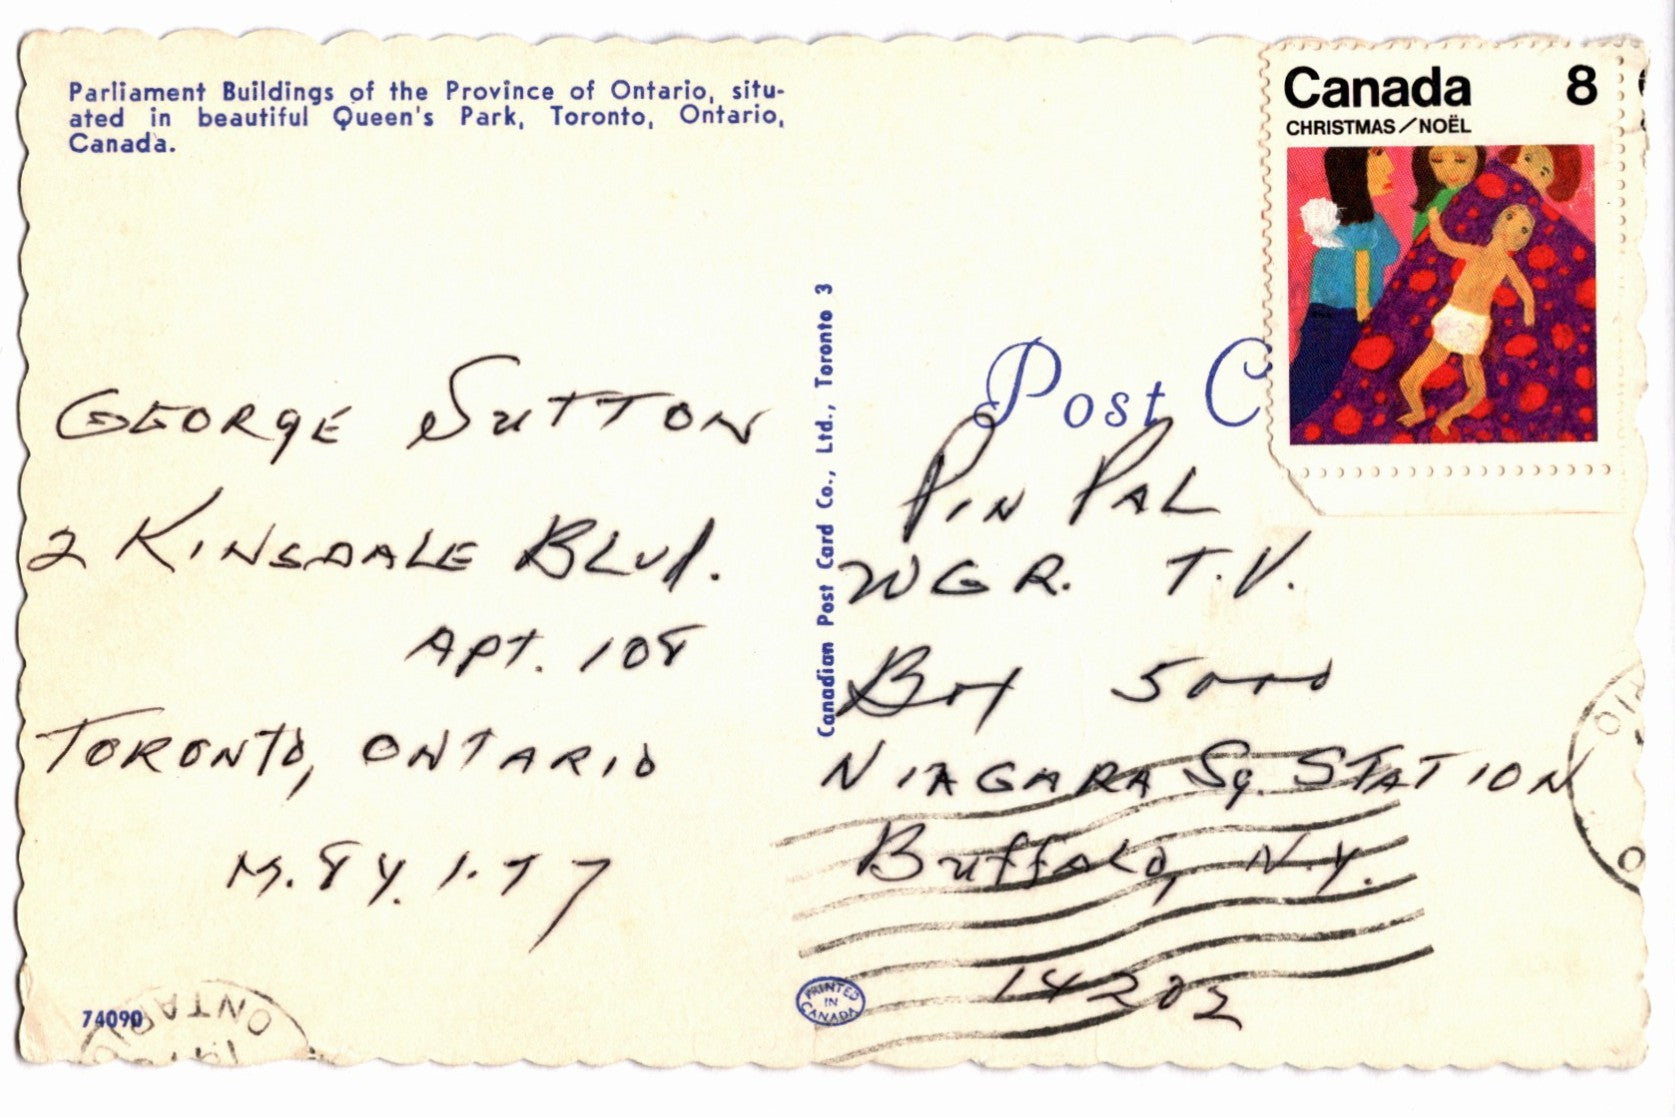 Parliament Buildings of the Province of Ontario, situ-
ated in beautiful Queen's Park, Toronto, Ontario,
Canada.
GEORGE SUTTON
2 KINSDALE BLVd.
APT. 108
TORONTO, ONTARIO
M.8Y.1.T7
74090
Canadian Post Card Co., Ltd., Toronto 3
PRINTED
IN
CANADA
Canada 8
CHRISTMAS/NOËL
Post C
PIN PAL
WGR. T.V.
Box 5000
NIAGARA Sq. STATION
Buffalo, N.Y.
14202
ONTARIO